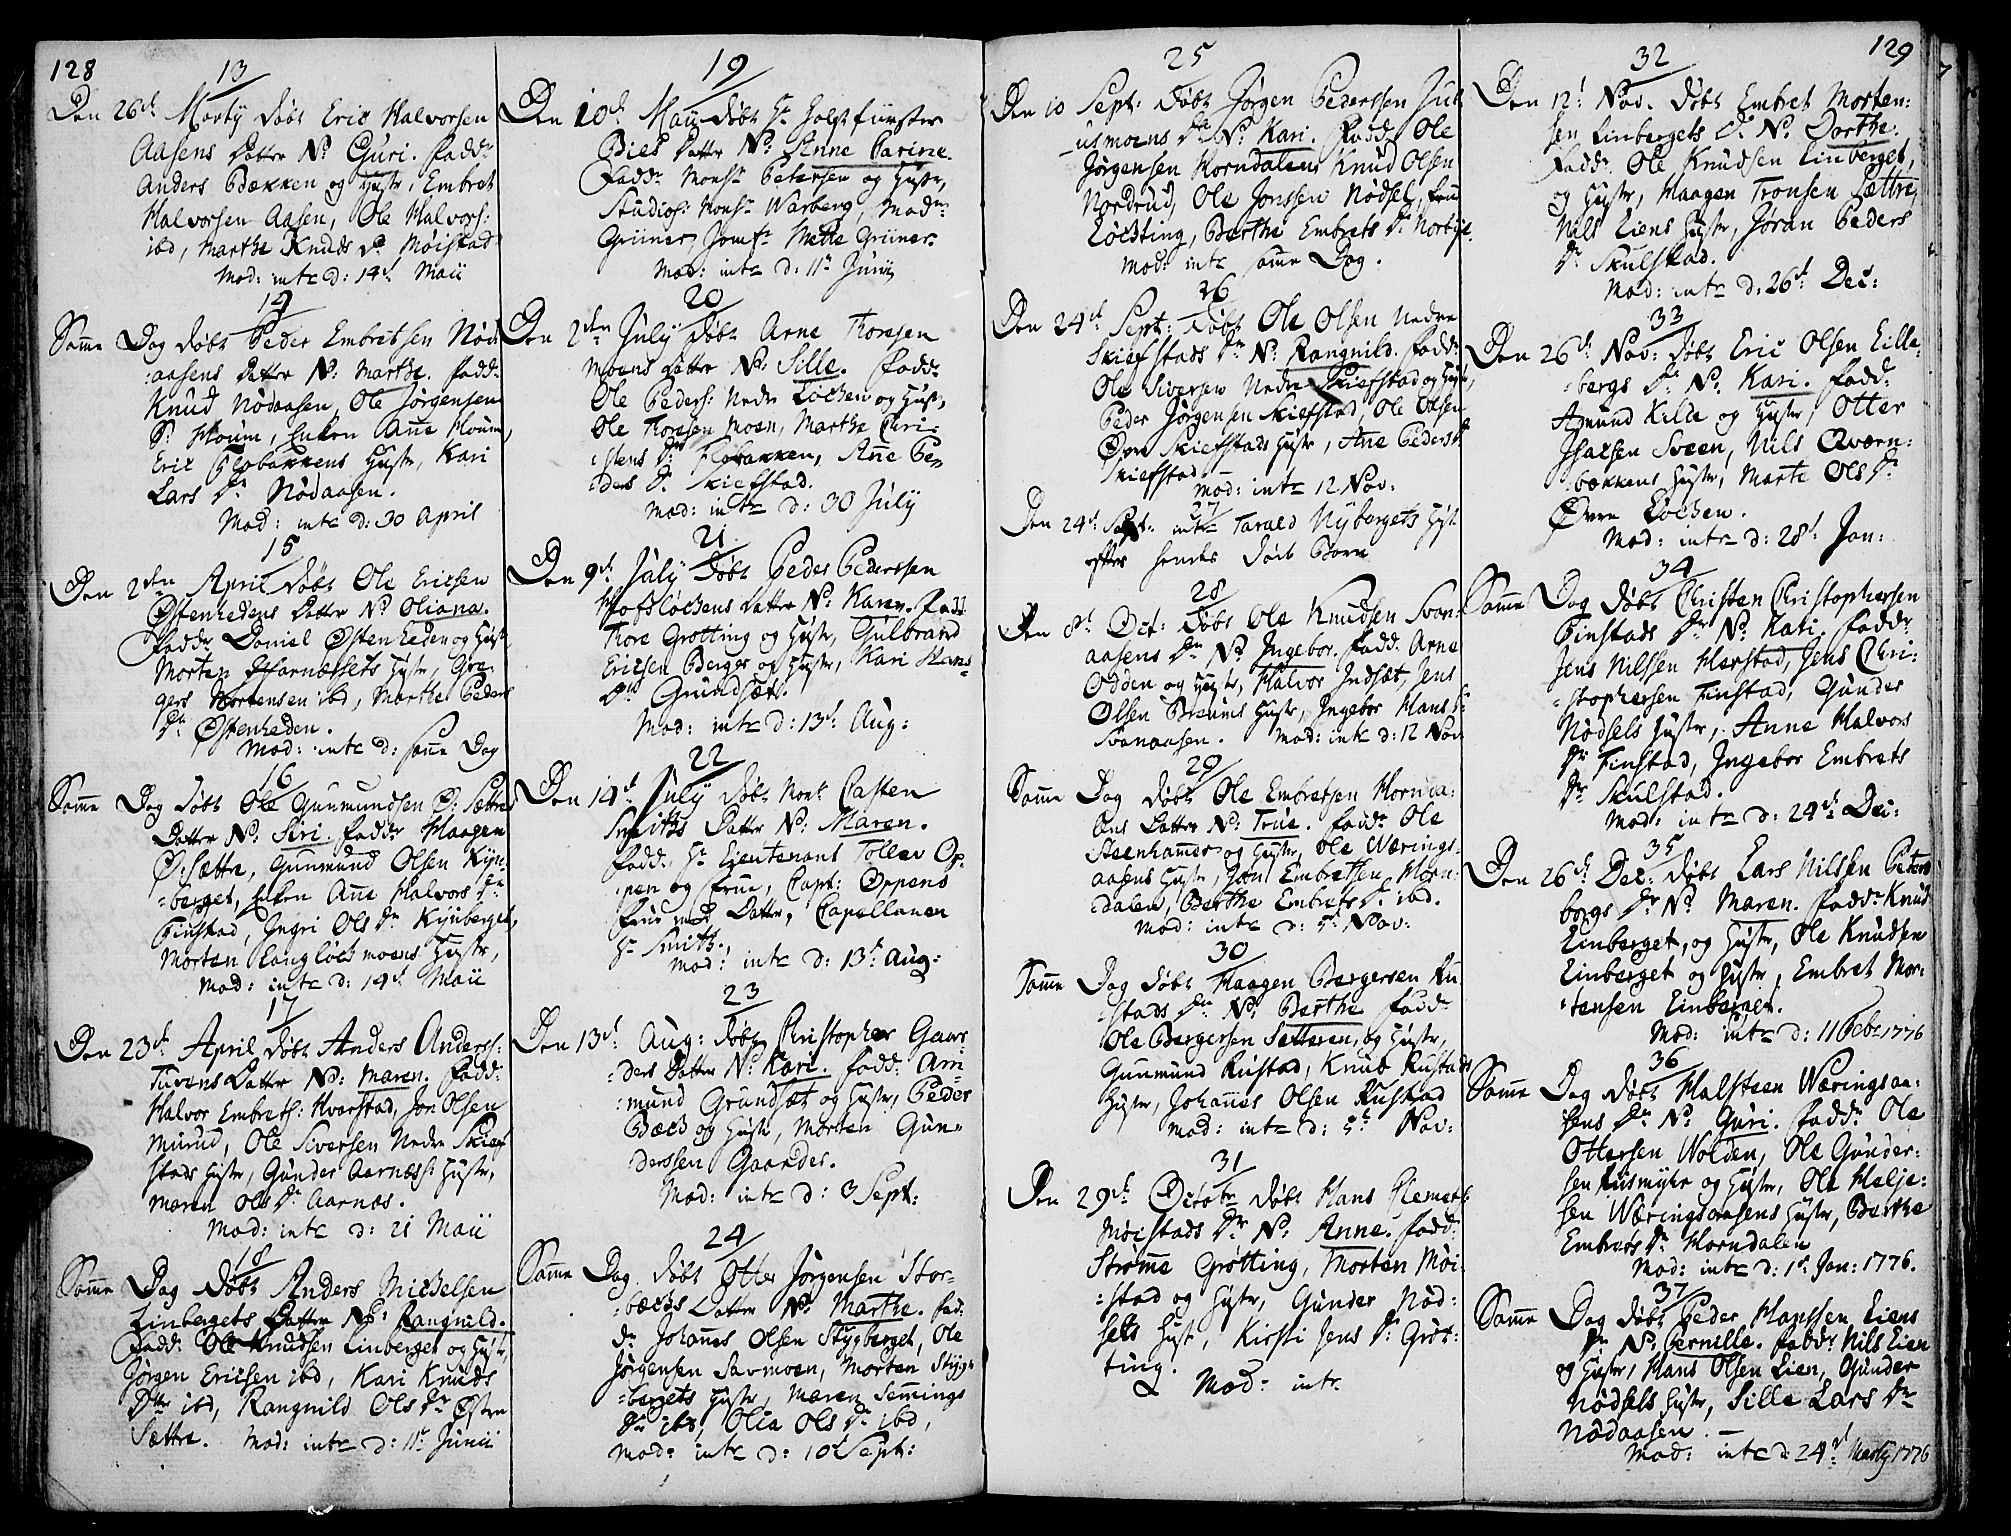 128
13
Den 26de Marty döbt Eric Halvorsen
Aasens Datter No Guri. fadd:
Anders Bækken og Hustr, Embret
Halvorsen Aasen, Ole Halvors:
ibd, Marthe Knuds Dr Möistad
Mod: intr d: 14d Maii
14
Samme Dag döbt Peder Embretsen Nöd
:aasens Datter N: Marthe. fadd:
Knud Nödaasen, Ole Jörgensen
S: Houm, Enken Anne Houm,
Eric Flobækkens Hustr, Kari
Lars Dr Nödaasen.
Mod: intr d: 30 April
15
Den 2den April döbt Ole Ericsen
Östenhedens Datter No Oliana.
fadd: Daniel Östenheden og Hustr
Morten Aarnæssets Hustr, Gre-
gers Mortensen ibd, Marthe Peders
Dr Östenheden.
Mod: intr d: samme Dag
16
Samme Dag döbt Ole Gunmundsen Ö: Sættre
Datter N: Siri. fadder Haagen
Ö: Sættre, Gunmund Olsen Kyn-
:berget, Enken Anne Halvors Dr
Finstad, Ingri Ols Dr Kynberget,
Morten Langlöckmoens Hustr,
Mod: intr d: 14d Maii
17
Den 23de April döbt Anders Anderss:
Tuvens Datter No: Maren. fadd:
Halvor Embrets: Hverstad, Jon Olsen
Murud, Ole Siversen Nedre Skief
stads Hustr, Gunder Aarnæss: Hustr,
Maren Ols Dr Aarnæs.
Mod: intr d: 21 Maii
18
Samme Dag döbt Anders Mickelsen
Linbergets Datter No: Rangnild.
fadd: Ole Knudsen Linberget og Hustr,
Jörgen Ericsen ibd, Kari Knuds
Dtr ibd, Rangnild Ols Dr Östre
Sættre. Mod: intr d: 11t Junii
19
Den 10d Maii döbt Hr Holzförster
Bies Datter N: Anne Carine.
Fadd: Monsr Petersen og Hustr,
Studios: Monsr Warberg, Madme
Grüner, Jomfr Mette Grüner
Mod: intr d: 11t Junii
20
Den 2den July döbt Arne Thoresen
Moens Datter No: Sille. fadd:
Ole Peders: Nedre Löcken og Hustr,
Ole Thoresen Moen, Marthe Chri-
:stens Dr Flobækken, Anne Pe-
:ders Dr Skiefstad.
Mod: intr d: 30 July
21
Den 9d July döbt Peder Pederssen
Hofslöckens Datter No: Karen. fadd
Thore Grötting og Hustr, Gulbrand
Ericsen Berger og Hustr, Kari Hans
Dtr Grundset.
Mod: intr d: 13d Aug:
22
Den 14d July döbt Monsr Casten
Smiths Datter No: Maren.
fadd: Hr Lieutenant Tollev Op-
:pen og Frue, Capt: Oppens
Frue med Datter, Capellanen
Hr Smith.
Mod: intr d: 13d Aug:
23
Den 13d Aug: döbt Christopher Gaar-
:ders Datter No: Kari. fadd: Am-
:mund Grundset og Hustr, Peder
Bæck og Hustr, Morten Gun-
derssen Gaarder.
Mod: intr d: 3 Sept:
24
Samme Dag döbt Otter Jörgensen Stor-
:bæcks Datter No: Marthe. fad-
dr Johannes Olsen Stygberget, Ole
Jörgensen Savmoen, Morten Styg-
:bergets Hustr, Maren Semmings
Dr ibd, Olia Ols Dr ibd,
Mod: intr d: 10d Sept:
25
Den 10 Sept: döbt Jörgen Pederssen Jul-
usmoens Dr No Kari. fadd: Ole
Jörgensen Horndalen Knud Olsen
Nordrud, Ole Jonssen Nödset, Frue
Löchting, Berthe Embrets Dr Norbye.
Mod: intr samme Dag.
26
Den 24d Sept: döbt Ole Olsen Nedre
Skiefstads Dr No: Rangnild. fadd:
Ole Siversen Nedre Skiefstad og Hustr,
Peder Jörgensen Skiefstad, Ole Olsen
Övre Skiefstads Hustr, Ane Peders Dr
Skiefstad
Mod: intr 12 Nov:
27
Den 24d Sept: intr Tarald Nyborgets Hustr
efter hendes död Barn
28
Den 8d Oct: döbt Ole Knudsen Svan-
aasens Dr No Ingebor. fadd: Arne
Odden og Hustr, Halvor Indset, Jens
Olsen Breums Hustr, Ingebor Hans Dr
Svanaasen. Mod: intr d: 12 Nov
29
Samme Dag döbt Ole Embretsen Hornda-
lens Datter No: True. fadd: Ole
Steenhammer og Hustr, Ole Wærings-
aasens Hustr, Jon Embretsen Horn-
:dalen, Berthe Embrets Dr ibd.
Mod: intr d: 5t Nov:
30
Samme Dag döbt Haagen Bergersen Ru-
:stads Dr No: Berthe fadd:
Ole Bergersen Sætteren, og Hustr,
Gunmund Rustad, Knud Rustads
Hustr, Johannes Olsen Rustad
Mod: intr d: 5t Nov:
31
Den 29d Octobr döbt Hans Clemets:
Möistads Dr No: Anne. fadd:
Strömme Grötting, Morten Möi-
:stad og Hustr, Gunder Nöd-
sets Hustr, Kirsti Jens Dr Gröt-
ting.
Mod: intr
129
32
Den 12t Nov. döbt Embret Morten:
sen Linbergets Dr No Dorthe.
fadd: Ole Knudsen Linberget,
og Hustr, Haagen Tronsen Sættre,
Nils Liens Hustr, Jöran Peders
Dr Skulstad.
Mod: intr d: 26d Dec:
33
Den 26d Nov: döbt Eric Olsen Lille-
:bergs Dr No. Kari. fadd:
Amund Kilde og Hustr, Otter
Isacsen Sveen, Nils Qværn:
bækkens Hustr, Marte Ols Dr
Övre Löcken.
Mod: intr d: 28d Jan:
34
Samme Dag döbt Christen Christophersen
Finstads Dr No: Kari. fadd:
Jens Nilssen Harstad, Jens Chri-
:stophersen Finstad, Gunder
Nödsets Hustr, Anne Halvors
Dr Finstad, Ingebor Embrets
Dr Skulstad.
Mod: intr d: 24d Dec:
35
Den 26d Dec: döbt Lars Nilsen Peters
borgs Dr No Maren. fadd: Knud
Linberget, og Hustr, Ole Knudsen
Linberget og Hustr, Embret Mor-
:tensen Linberget.
Mod: intr d: 11 Febr 1776
36
Samme Dag döbt Halsteen Wæringsaa-
sens Dr No Guri. fadd: Ole
Ottersen Wolden, Ole Gunder-
sen Ruismyhr og Hustr, Ole Helje-
sen Wæringsaasens Hustr, Berthe
Embrets Dr Horndalen
Mod: intr d: 1d Jan: 1776.
37
Samme Dag döbt Peder Hanssen Liens
Dr No Pernille. fadd: Nils Lien
og Hustr, Hans Olsen Lien, Gunder
Nödsets Hustr, Sille Lars Dr
Nödaasen. —
Mod: intr d 24d Marty 1776